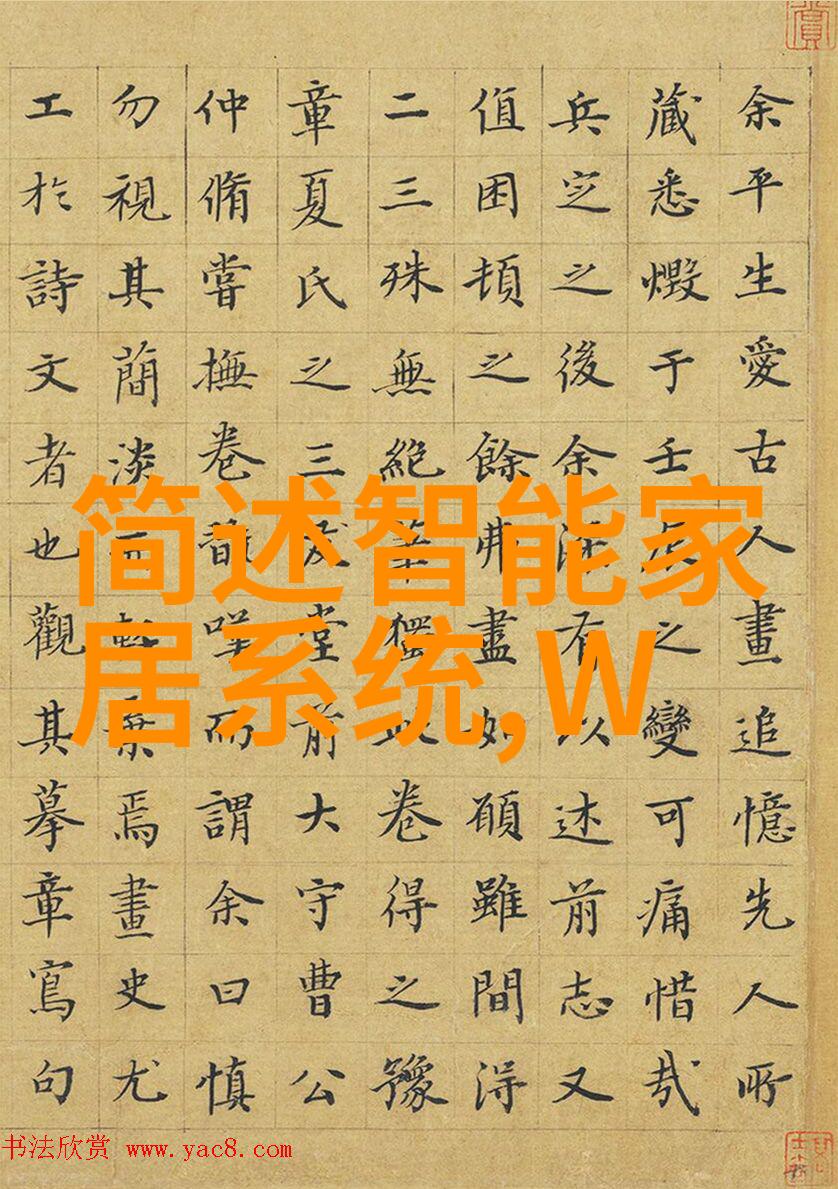 余平生愛古人畫追憶先人所
藏悉燬于壬之變可痛惜哉
兵定之後余有以述前志又
值困頓之餘弗盡如願雖間得
二三殊無絕筆獨此卷得之豫
章夏氏之三友堂前大守曹公
仲脩嘗撫卷嘆而謂余曰慎
勿視其蕳淡而輕棄焉畫史尤
工於詩文者也觀其摹章寫句
简述智能家
居系统,W
书法欣赏 www.yac8.com